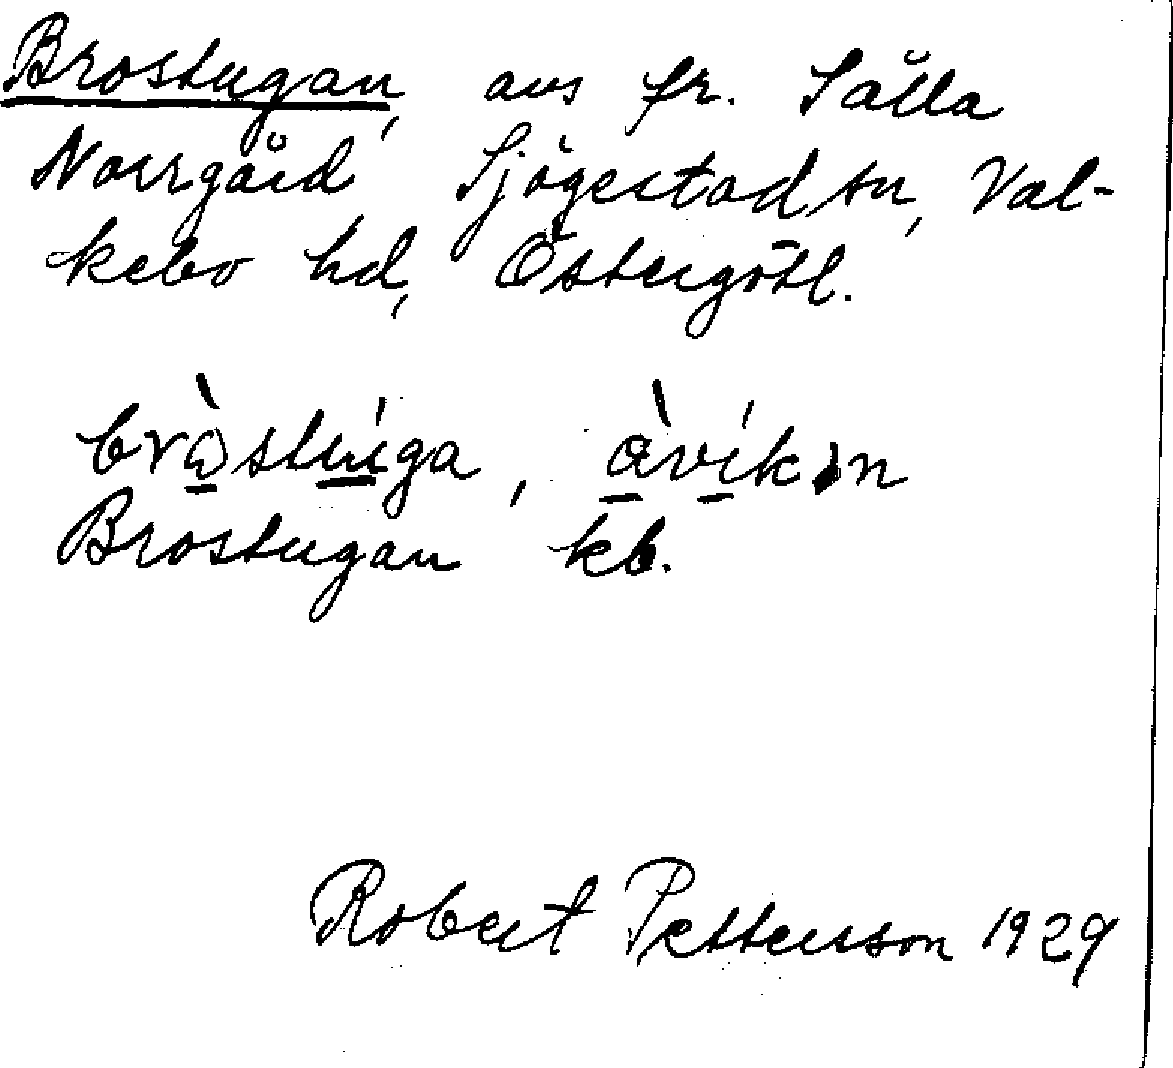 Brostugan, avs fr. Sålla
Norrgård Sjögestad sn, Val-
kebo hd, Östergötl.
bròstúga, àvíkən
Brostugan kb.
Robert Pettersson 1929